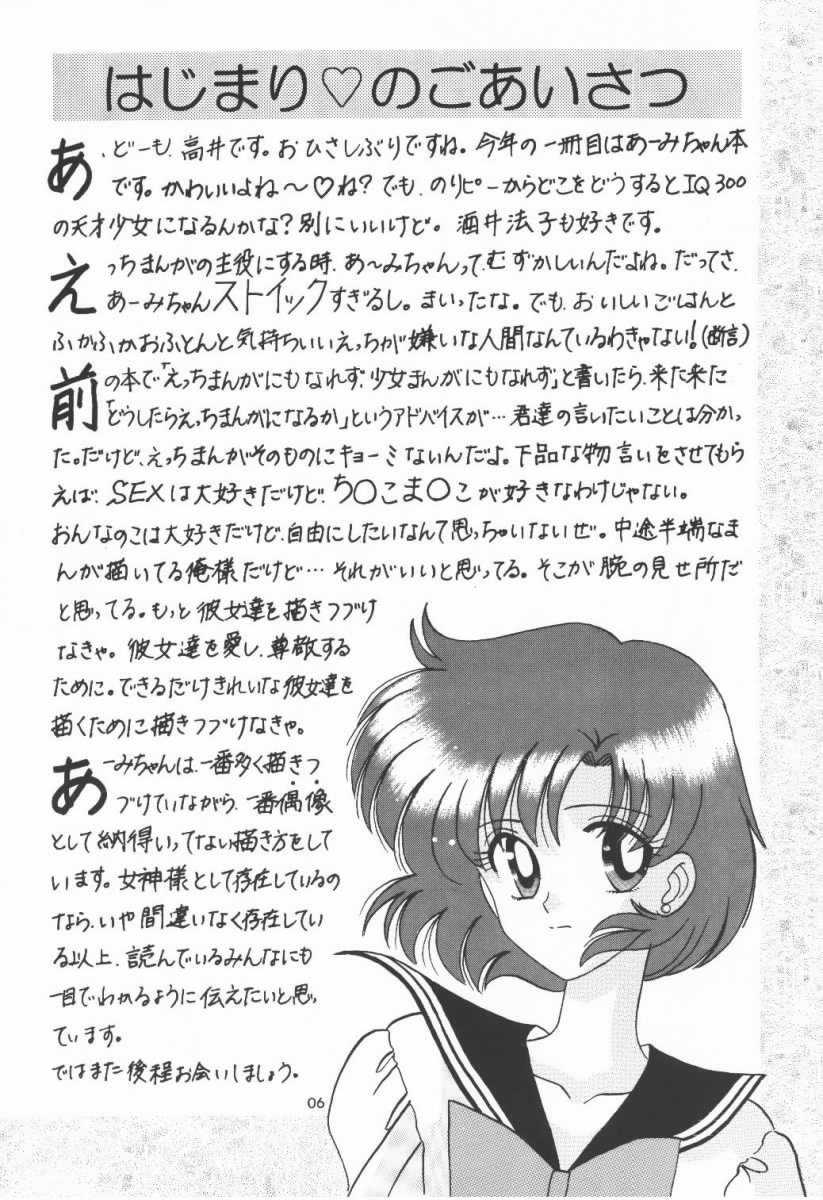 はじまり♡のごあいさつ
あ、どーも、高井です。おひさしぶりですね。今年の一冊目はあーみちゃん本
です。かわいいよね〜♡ね？でも、のりピーからどこをどうするとIQ300
の天才少女になるんかな？別にいいけど。酒井法子も好きです。
えっちまんがの主役にする時、あ〜みちゃんって、むずかしいんだよね。だってさ、
あーみちゃんストイックすぎるし。まいったな。でも、おいしいごはんと
ふかふかおふとんと気持ちいいえっちが嫌いな人間なんているわきゃない！（断言）
前の本で「えっちまんがにもなれず、少女まんがにもなれず」と書いたら、来た来た
「どうしたらえっちまんがになるか」というアドバイスが…君達の言いたいことは分かっ
た。だけど、えっちまんがそのものにキョーミないんだよ。下品な物言いをさせてもら
えば、SEXは大好きだけど、ち○こま○こが好きなわけじゃない。
おんなのこは大好きだけど、自由にしたいなんて思っちゃいないぜ。中途半端なま
んが描いてる俺様だけど…それがいいと思ってる。そこが腕の見せ所だ
と思ってる。もっと彼女達を描きつづけ
なきゃ。彼女達を愛し、尊敬する
ために。できるだけきれいな彼女達を
描くために描きつづけなきゃ。
あーみちゃんは、一番多く描きつ
づけていながら、一番偶像
として納得いってない描き方をして
います。女神様として存在しているの
なら、いや間違いなく存在してい
る以上、読んでいるみんなにも
一目でわかるように伝えたいと思っ
ています。
ではまた後程お会いしましょう。
06